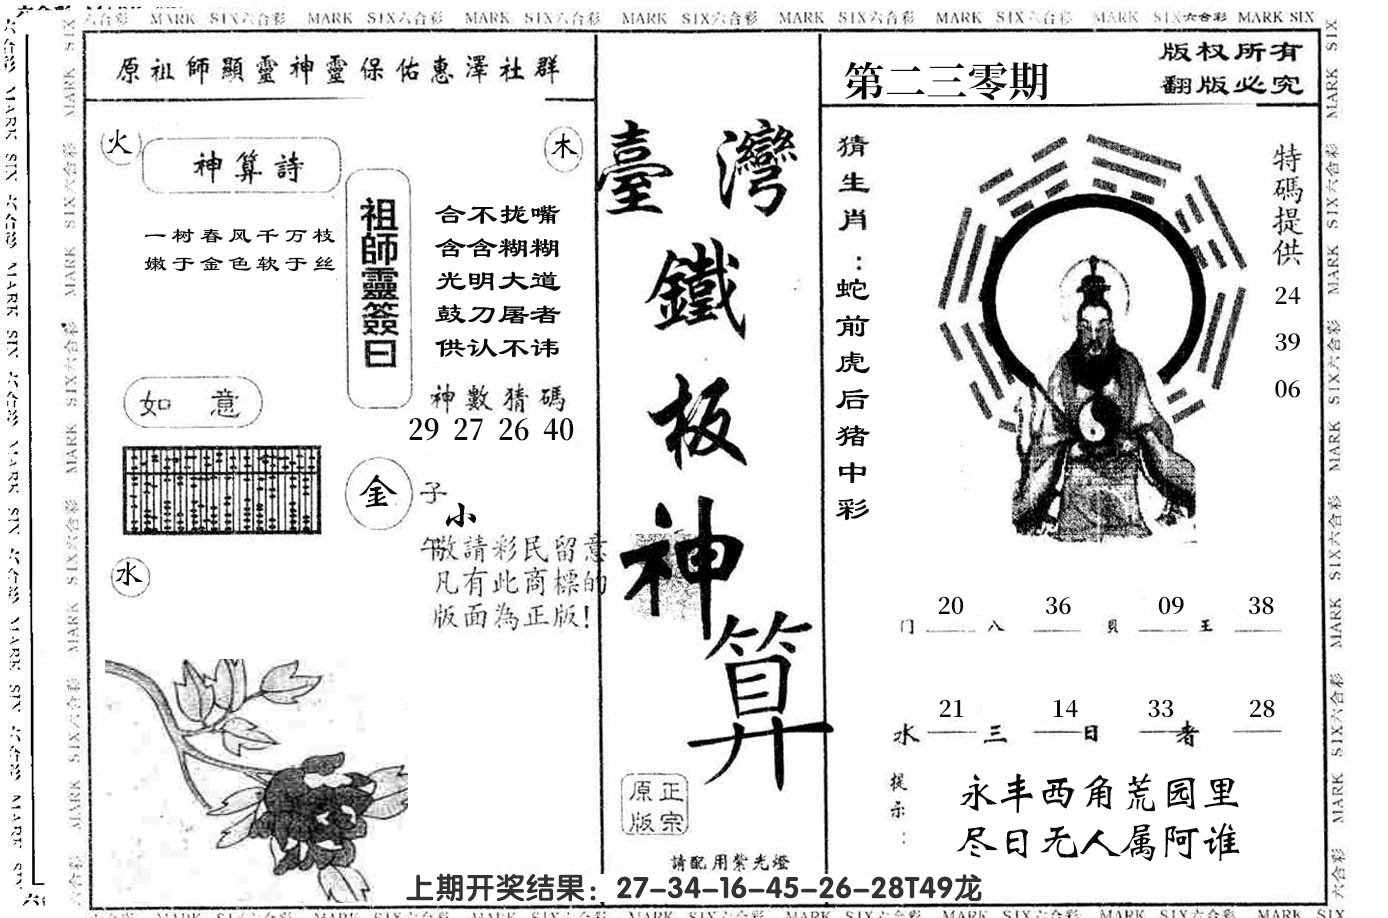 MARK SIX六合彩 MARK SIX六合彩 MARK SIX六合彩 MARK SIX六合彩 MARK SIX六合彩 MARK SIX六合彩 MARK SIX六合彩 MARK SIX
原祖師顯靈神靈保佑惠澤社群
火
神算詩
木
一树春风千万枝
嫩于金色软于丝
祖師靈簽曰
合不拢嘴
含含糊糊
光明大道
鼓刀屠者
供认不讳
神數猜碼
29 27 26 40
如意
金
子
小
午
敬請彩民留意
凡有此商標的
版面為正版!
水
臺灣
鐵
板
神
算
正宗
原版
請配用紫光燈
第二三零期
版权所有
翻版必究
猜生肖:蛇前虎后猪中彩
特碼提供
24
39
06
20 36 09 38
门 八 貝 王
21 14 33 28
水 三 日 者
提示:
永丰西角荒园里
尽日无人属阿谁
上期开奖结果：27-34-16-45-26-28T49龙